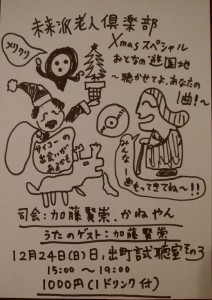 未来派老人倶楽部
Xmasスペシャル
おとなの遊園地
〜聴かせてよ、あなたの
1曲!〜
メリクリ
サイコーの
出会いが
あるかも
みんな一曲もってきてね〜!!
司会:加藤賢崇、かねやん
うたのゲスト:加藤賢崇
12月24日(日)、出町試聴室その3
15:00 〜 19:00
1000円(1ドリンク付)